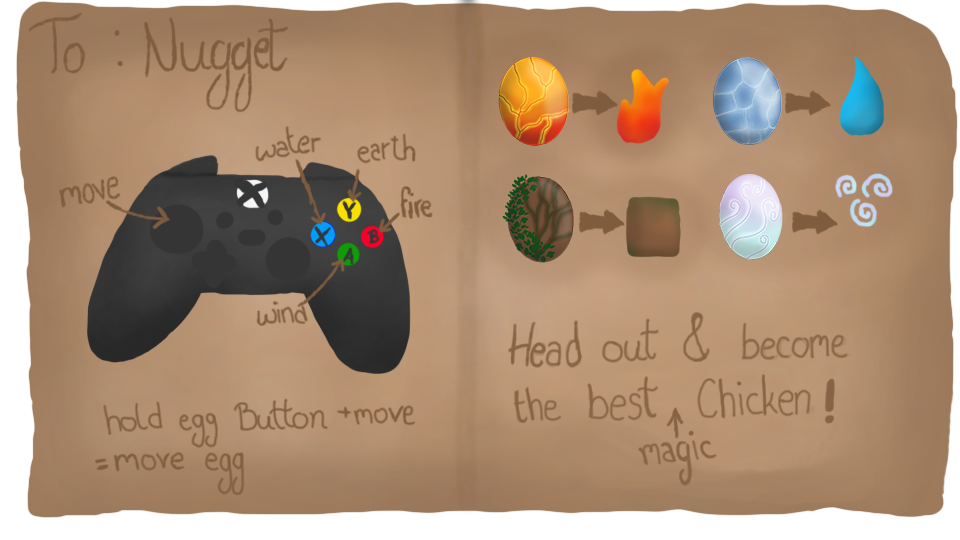 To : Nugget
water
earth
move
fire
Y
X
B
A
wind
hold egg Button +move
=move egg
Head out & become
the best Chicken!
magic